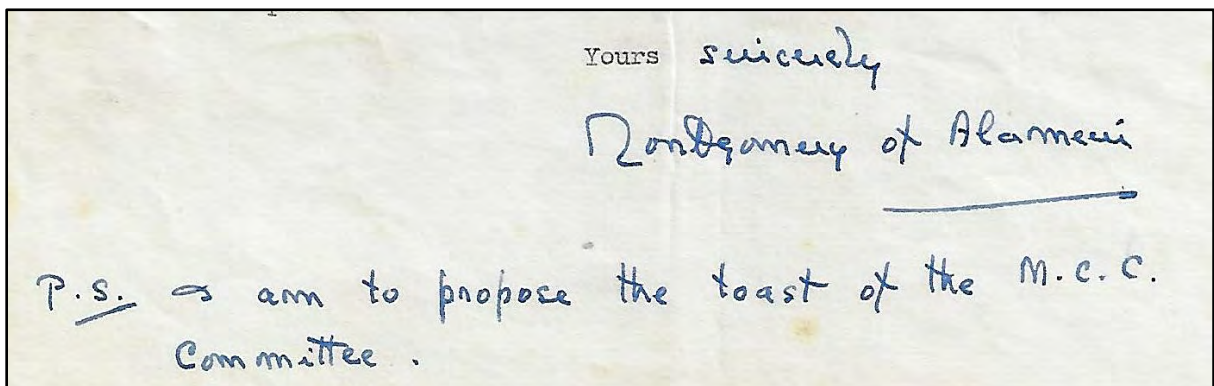 Yours sincerely
Montgomery of Alamein
P.S. I am to propose the toast of the M.C.C.
Committee.